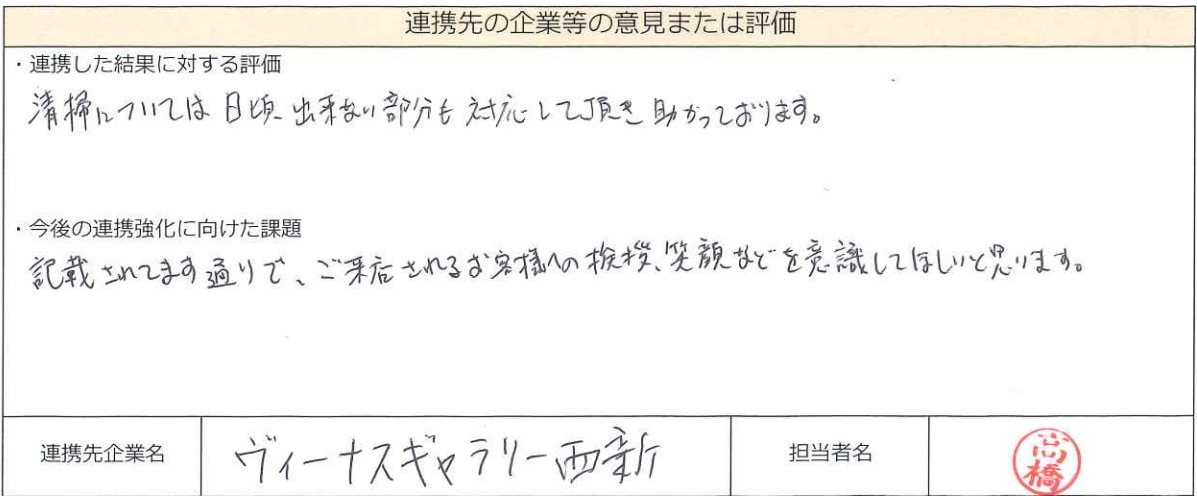 連携先の企業等の意見または評価
・連携した結果に対する評価
清掃については日頃、出来ない部分も対応して頂き助かっております。
・今後の連携強化に向けた課題
記載されてます通りで、ご来店されるお客様への挨拶、笑顔などを意識してほしいと思います。
連携先企業名
ヴィーナスギャラリー西新
担当者名
高橋